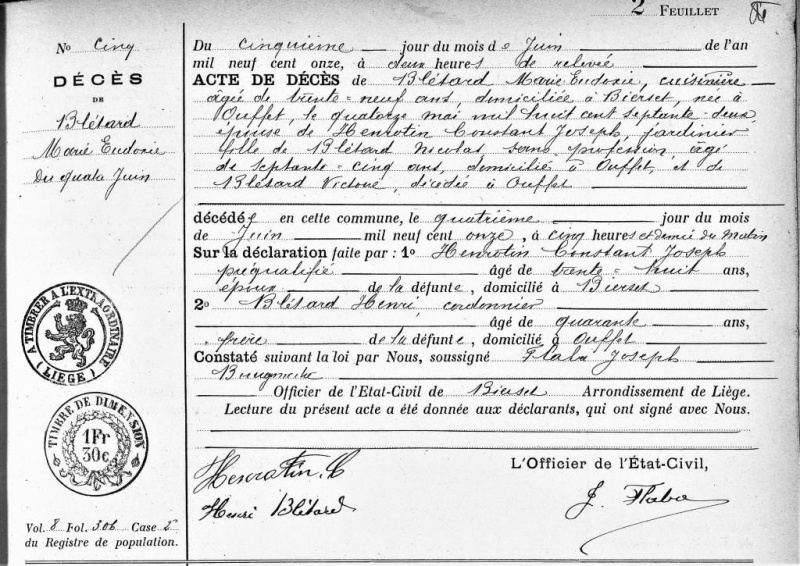 2 FEUILLET
No Cinq
DÉCÈS
DE
Blétard
Marie Eudoxie
Du quatre Juin
A TIMBRER A L'EXTRAORDINAIRE
(LIEGE)
TIMBRE DE DIMENSION
1Fr
30c
Vol. 8 Fol. 306 Case 5
du Registre de population.
Du cinquième jour du mois de Juin de l'an
mil neuf cent onze, à deux heures de relevée
ACTE DE DÉCÈS de Blétard Marie Eudoxie, cuisinière
âgée de trente-neuf ans, domiciliée à Bierset, née à
Ouffet, le quatorze mai mil huit cent septante-deux
épouse de Henrotin Constant Joseph, jardinier
fille de Blétard Nicolas, sans profession, âgé
de septante-cinq ans, domicilié à Ouffet, et de
Blétard Victoire, décédée à Ouffet
décédée en cette commune, le quatrième jour du mois
de Juin mil neuf cent onze, à cinq heures et demie du matin
Sur la déclaration faite par : 1o Henrotin Constant Joseph
préqualifié âgé de trente-huit ans,
époux de la défunte, domicilié à Bierset
2o Blétard Henri, cordonnier
âgé de quarante ans,
frère de la défunte, domicilié à Ouffet
Constaté suivant la loi par Nous, soussigné Flaba Joseph
Bourgmestre
Officier de l'Etat-Civil de Bierset Arrondissement de Liége.
Lecture du présent acte a été donnée aux déclarants, qui ont signé avec Nous.
L'Officier de l'État-Civil,
Henrotin. C
Henri Blétard
J. Flaba